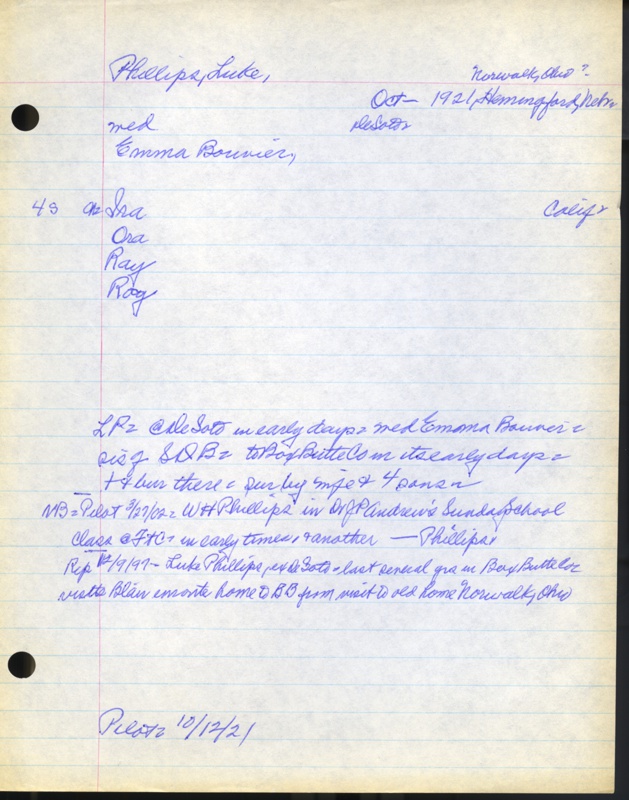 Phillips, Luke,
Norwalk, Ohio ?
Oct - 1921, Hemingford, Nebr
DeSoto
med
Emma Bouvier,
4s Ira Calif
Ora
Ray
Roy
LP = @ DeSoto in early days = med Emma Bouvier =
sis of SDB = to Box Butte Co in its early days =
+ & bur there = sur by wife & 4 sons =
NB = Pilot 3/27/02 = WH Phillips in Dr JP Andrew's Sunday School
Class @ FtC in early times, & another — Phillips
Rep 12/9/97 - Luke Phillips, ex DeSoto = last several yrs in Box Butte Co
visits Blair enroute home to BB from visit to old home Norwalk, Ohio
Pilot = 10/12/21